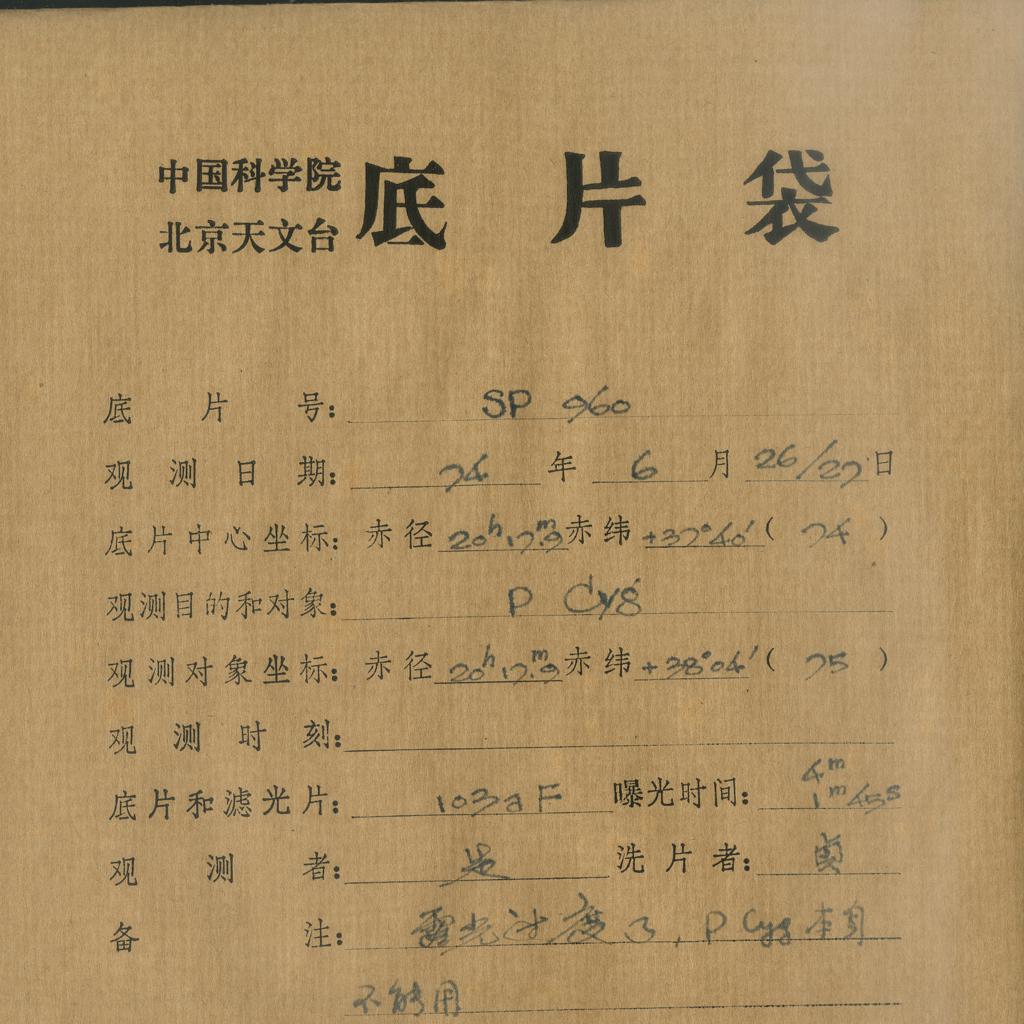 中国科学院
北京天文台
底片袋
底片号: SP 960
观测日期: 74 年 6 月 26/27 日
底片中心坐标: 赤径 20ʰ17ᵐ.9 赤纬 +37°40′ ( 74 )
观测目的和对象: P Cyg
观测对象坐标: 赤径 20ʰ17ᵐ.9 赤纬 +38°04′ ( 75 )
观测时刻:
底片和滤光片: 103aF 曝光时间: 4ᵐ 1ᵐ45ˢ
观测者: 洗片者:
备注: 露光过度了, P Cyg 本身
不能用